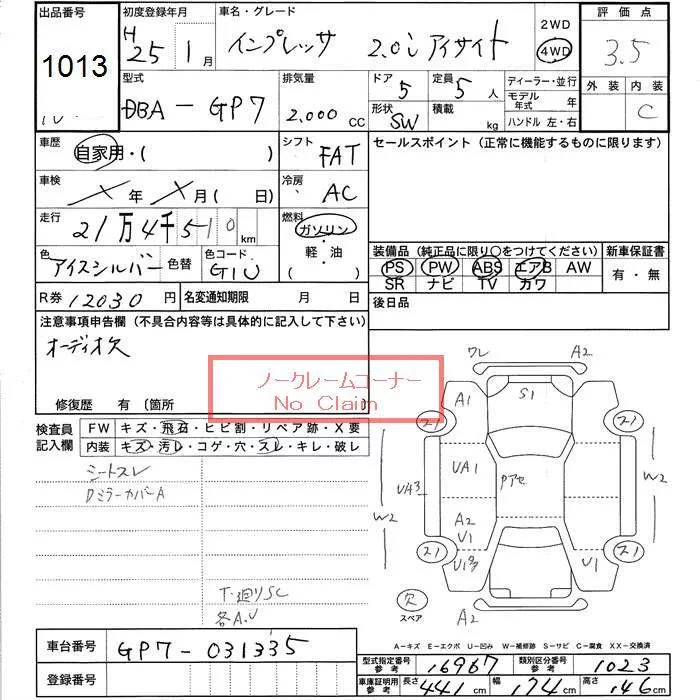 出品番号 初度登録年月 車名・グレード 2WD 評価点
1013 H25 1月 インプレッサ 2.0i アイサイト 4WD 3.5
型式 排気量 ドア 定員 ディーラー・並行 外装 内装
DBA-GP7 2.000cc 5 5人 モデル年式 年 C
形状 SW 積載 kg ハンドル 左・右
車歴 自家用・( ) シフト FAT セールスポイント (正常に機能するものに限ります)
車検 X年 X月( 日) 冷房 AC
走行 21万4千510km 燃料 ガソリン・軽・油( )
色 アイスシルバー 色替 色コード G1U
装備品 (純正品に限り○をつけてください) 新車保証書
PS PW ABS エアB AW 有・無
SR ナビ TV カワ
R券 12030円 名変通知期限 月 日 後日品
注意事項申告欄 (不具合内容等は具体的に記入して下さい)
オーディオ欠
ノークレームコーナー
No Claim
修復歴 有 (箇所 )
検査員記入欄 FW キズ・飛石・ヒビ割・リペア跡・X要
内装 キズ・汚レ・コゲ・穴・スレ・キレ・破レ
シートスレ
DミラーカバーA
T・廻りSC
各A.U
ワレ A2
A1 S1
UA1 Pアセ
UA3 W2 W2
A2
U1
U13 U1
欠 A2
スペア
A-キズ E-エクボ U-凹み W-補修跡 S-サビ C-腐食 XX-交換済
車台番号 GP7-031335
登録番号
型式指定番号 参考 16967 類別区分番号 参考 1023
車庫証明用 参考 長さ 441cm 幅 174cm 高さ 146cm